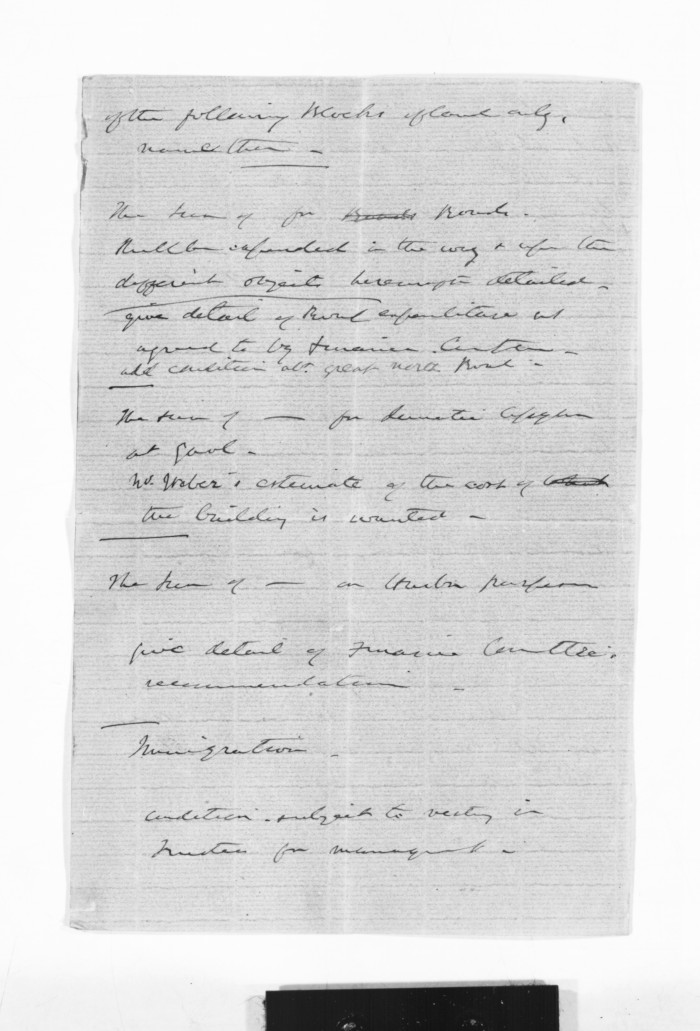 of the following Blocks of land only,
name them -
The sum of for Roads Roads.
Shall be expended in the way & upon the
different objects hereinafter detailed -
give detail of Road expenditure as
agreed to by Finance
add condition abt. great north Road -
The sum of — for Lunatic Asylum
at Gaol -
Mr. Weber's estimate of the cost of
the building is wanted -
The sum of — on Harbor purposes
give detail of Finance Committee's
recommendation -
Immigration -
condition - subject to vesting in
Trustees for management -